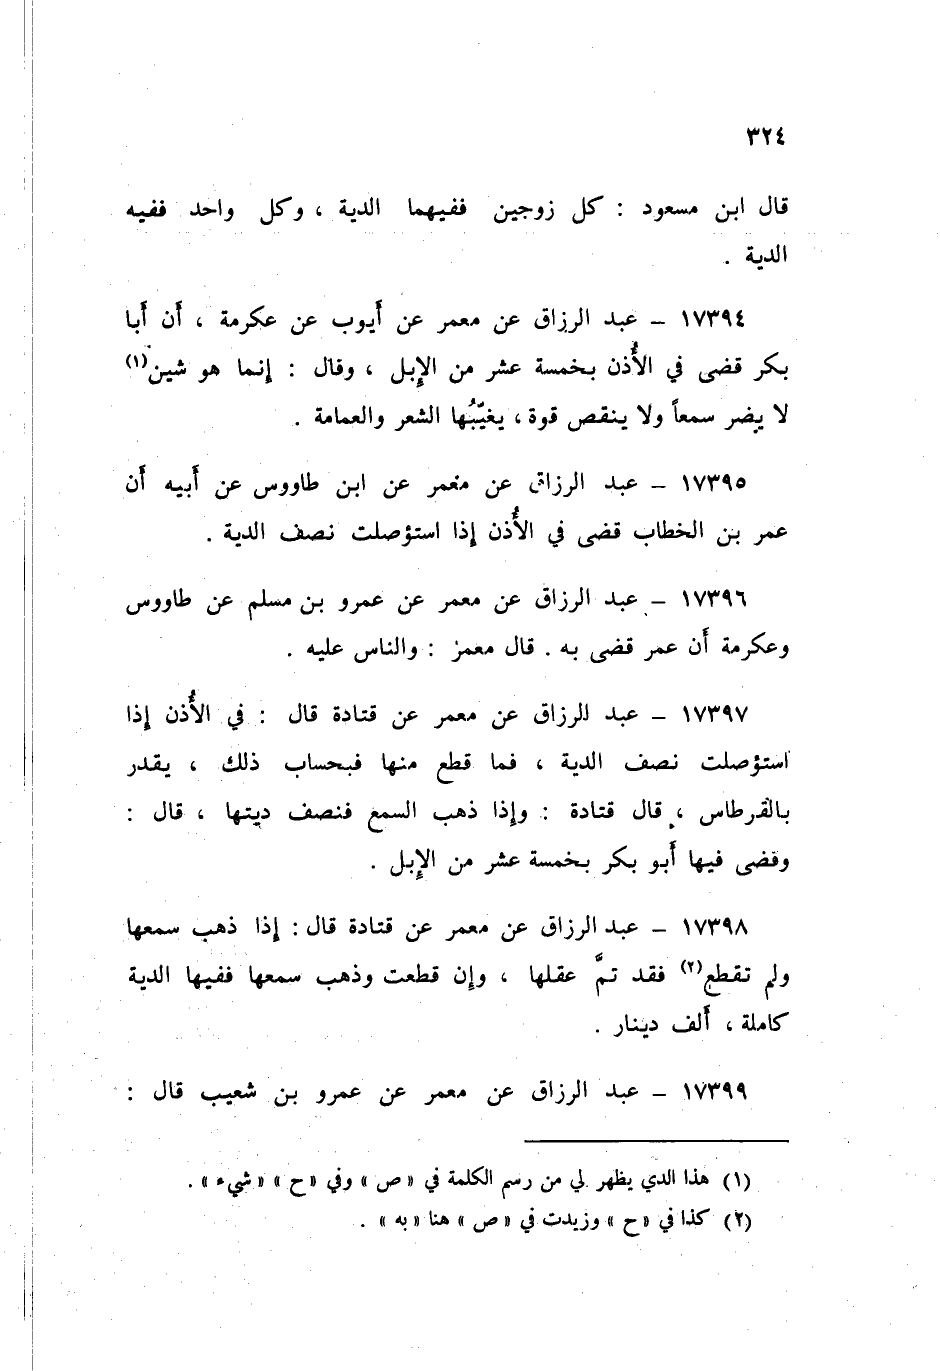 ٣٢٤
قال ابن مسعود : كل زوجين ففيهما الدية ، وكل واحد ففيه
الدية .
١٧٣٩٤ – عبد الرزاق عن معمر عن أيوب عن عكرمة ، أن أبا
بكر قضى في الأُذن بخمسة عشر من الإبل ، وقال : إنما هو شين(١)
لا يضر سمعاً ولا ينقص قوة ، يغيّبُها الشعر والعمامة .
١٧٣٩٥ – عبد الرزاق عن معمر عن ابن طاووس عن أبيه أن
عمر بن الخطاب قضى في الأُذن إذا استؤصلت نصف الدية .
١٧٣٩٦ – عبد الرزاق عن معمر عن عمرو بن مسلم عن طاووس
وعكرمة أن عمر قضى به . قال معمر : والناس عليه .
١٧٣٩٧ – عبد الرزاق عن معمر عن قتادة قال : في الأُذن إذا
استؤصلت نصف الدية ، فما قطع منها فبحساب ذلك ، يقدر
بالقرطاس ، قال قتادة : وإذا ذهب السمع فنصف ديتها ، قال :
وقضى فيها أبو بكر بخمسة عشر من الإبل .
١٧٣٩٨ – عبد الرزاق عن معمر عن قتادة قال : إذا ذهب سمعها
ولم تقطع(٢) فقد تمَّ عقلها ، وإن قطعت وذهب سمعها ففيها الدية
كاملة ، ألف دينار .
١٧٣٩٩ – عبد الرزاق عن معمر عن عمرو بن شعيب قال :
(١) هذا الدي يظهر لي من رسم الكلمة في «ص» وفي «ح» «شيء» .
(٢) كذا في «ح» وزيدت في «ص» هنا «به» .